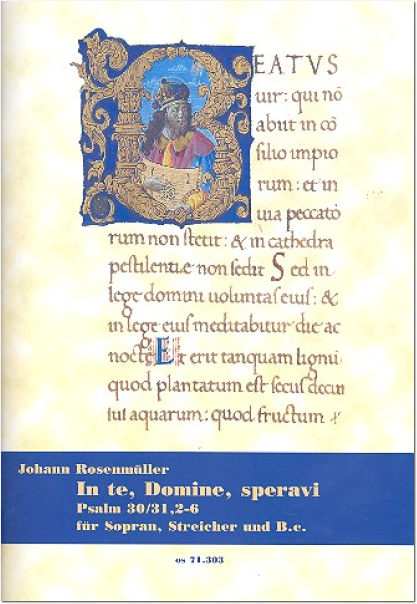 BEATVS
uir: qui nō
abiit in cō
silio impio
rum: et in
uia peccato
rum non stetit: & in cathedra
pestilentiæ non sedit Sed in
lege domini uoluntas eius: &
in lege eius meditabitur die ac
nocte Et erit tanquam lignū
quod plantatum est secus decur
sus aquarum: quod fructum
Johann Rosenmüller
In te, Domine, speravi
Psalm 30/31,2-6
für Sopran, Streicher und B.c.
os 71.303